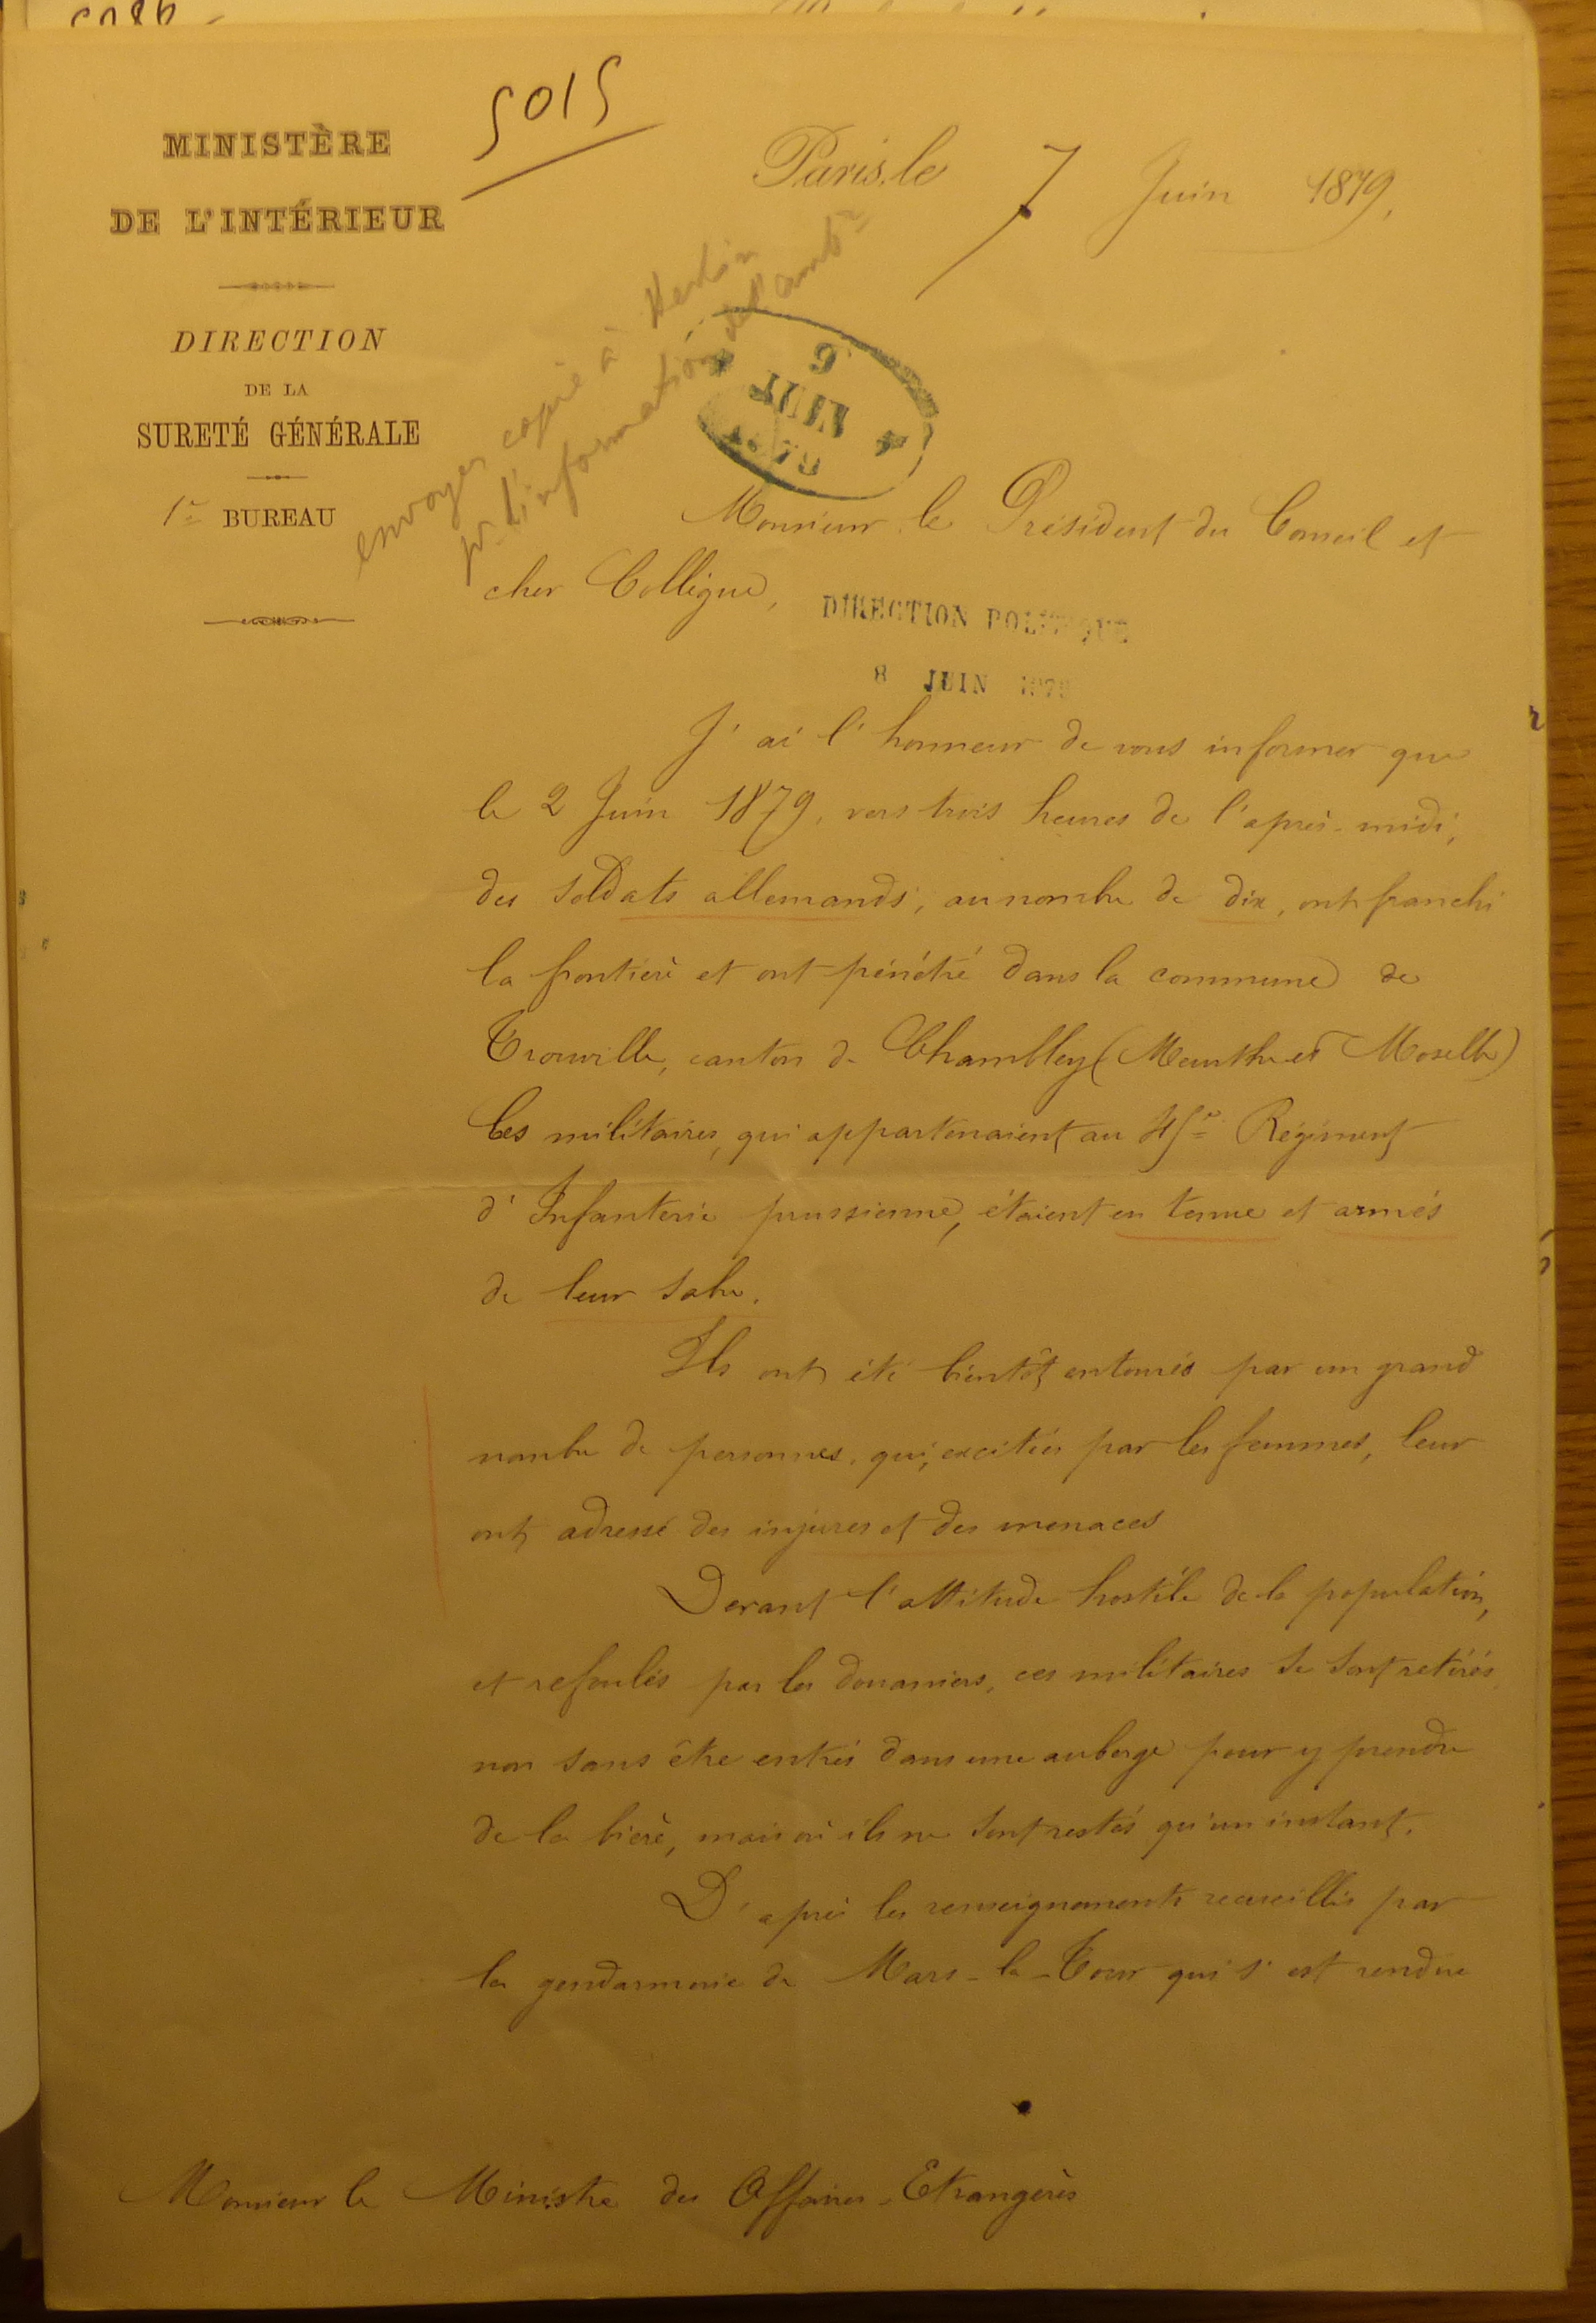 5015
MINISTÈRE
DE L'INTÉRIEUR
DIRECTION
DE LA
SURETÉ GÉNÉRALE
1er BUREAU
Paris, le 7 Juin 1879,
envoyer copie à Berlin
pr l'information de l'ambr
9
JUIN
1879
Monsieur le Président du Conseil et
cher Collègue,
DIRECTION POLITIQUE
8 JUIN 1879
J'ai l'honneur de vous informer que
le 2 Juin 1879, vers trois heures de l'après-midi,
des soldats allemands, au nombre de dix, ont franchi
la frontière et ont pénétré dans la commune de
Tronville, canton de Chambley (Meurthe et Moselle)
Ces militaires, qui appartenaient au 45e Régiment
d'Infanterie prussienne, étaient en tenue et armés
de leur sabre.
Ils ont été bientôt entourés par un grand
nombre de personnes, qui, excitées par les femmes, leur
ont adressé des injures et des menaces
Devant l'attitude hostile de la population,
et refoulés par les douaniers, ces militaires se sont retirés,
non sans être entrés dans une auberge pour y prendre
de la bière, mais où ils ne sont restés qu'un instant.
D'après les renseignements recueillis par
la gendarmerie de Mars-la-Tour qui s'est rendue
Monsieur le Ministre des Affaires Etrangères